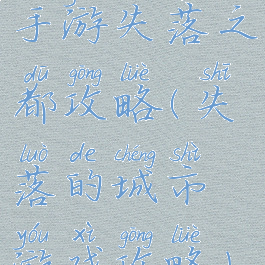 手游失落之
dū gōng lüè shī
都攻略(失
luò de chéng shì
落的城市
yóu xì gōng lüè
游戏攻略)